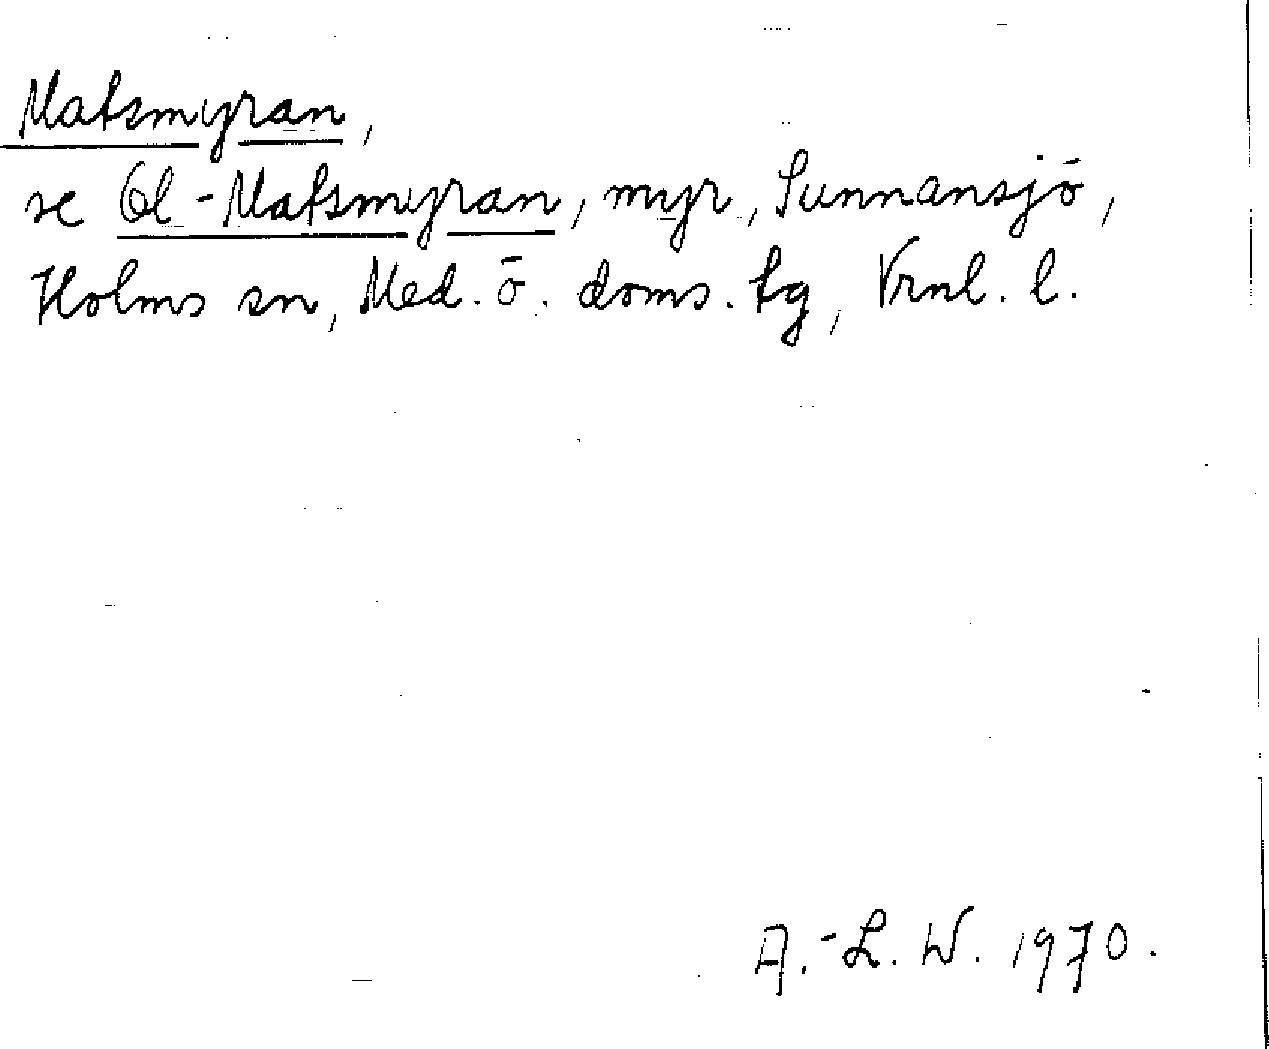 Matsmyran,
se Ol-Matsmyran, myr, Sunnansjö,
Holms sn, Med. ö. doms. tg, Vrnl. l.
A.-L. W. 1970.